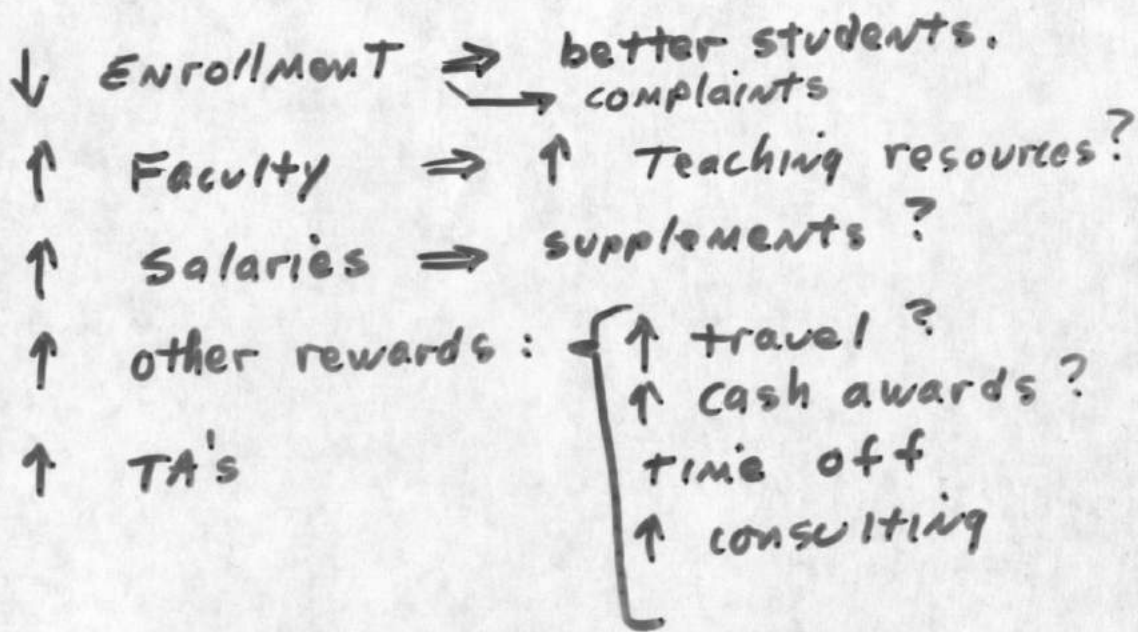 ↓ Enrollment ⇒ better students.
→ complaints
↑ Faculty ⇒ ↑ Teaching resources?
↑ Salaries ⇒ supplements?
↑ other rewards: { ↑ travel?
↑ cash awards?
time off
↑ consulting
↑ TA's